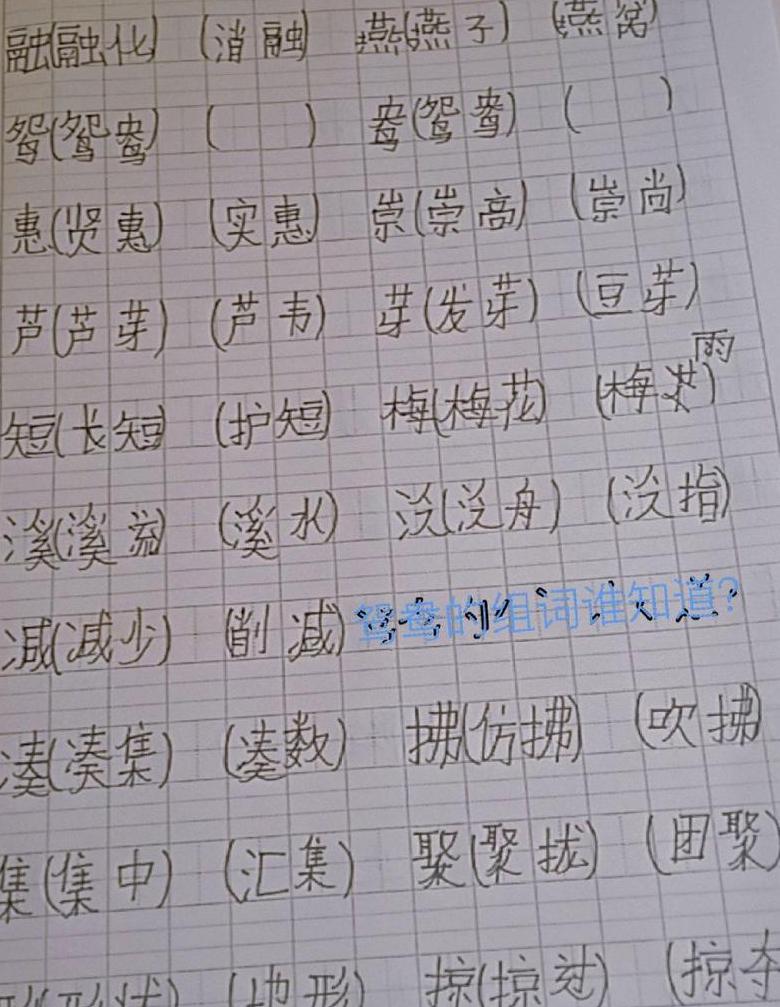 融(融化) (消融) 燕(燕子) (燕窝)
鸳(鸳鸯) ( ) 鸯(鸳鸯) ( )
惠(贤惠) (实惠) 崇(崇高) (崇尚)
芦(芦芽) (芦韦) 芽(发芽) (豆芽)
雨
短(长短) (护短) 梅(梅花) (梅)
溪(溪流) (溪水) 泛(泛舟) (泛指)
减(减少) (削减) 鸳鸯的组词谁知道?
凑(凑集) (凑数) 拂(仿拂) (吹拂)
集(集中) (汇集) 聚(聚拢) (团聚)
形(形状) (地形) 掠(掠过) (掠夺